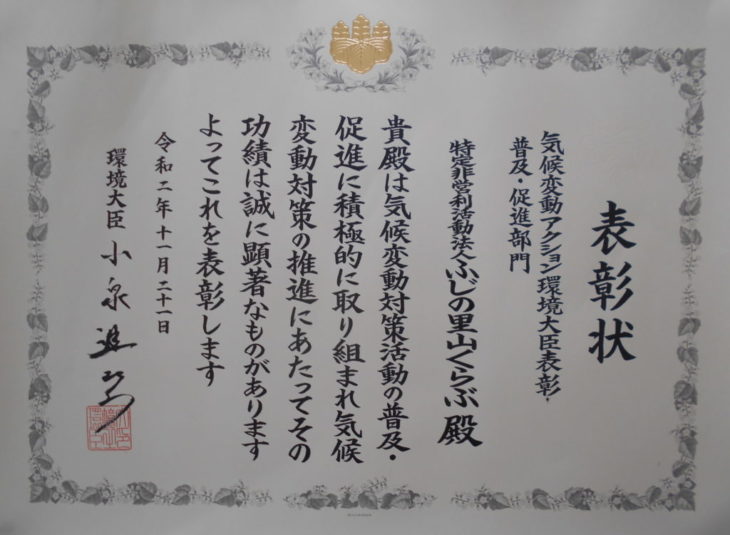 表彰状
気候変動アクション環境大臣表彰・
普及・促進部門
特定非営利活動法人ふじの里山くらぶ 殿
貴殿は気候変動対策活動の普及・
促進に積極的に取り組まれ気候
変動対策の推進にあたってその
功績は誠に顕著なものがあります
よってこれを表彰します
令和二年十一月二十一日
環境大臣 小泉進次郎